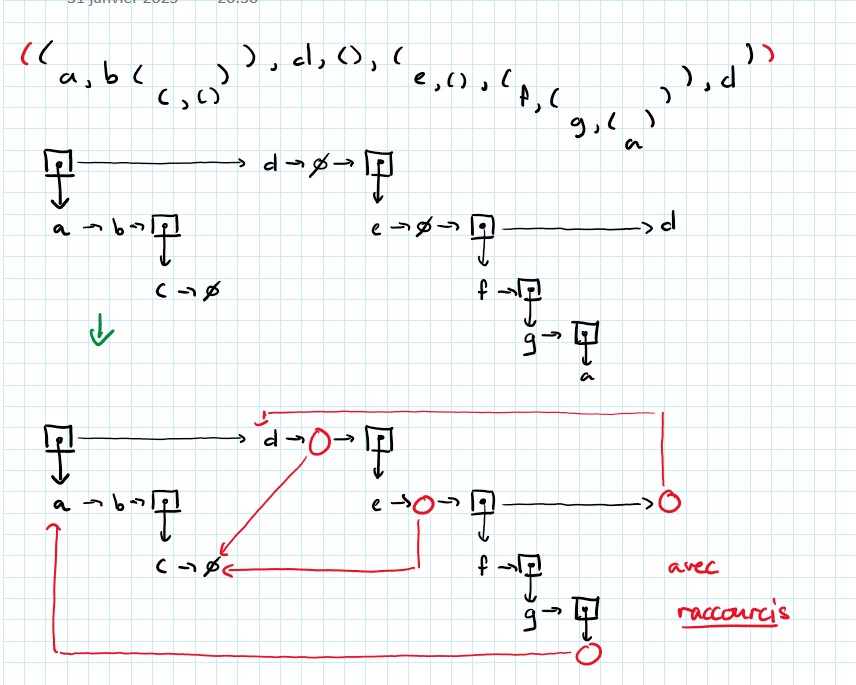 31 janvier 2025 20:50
((a, b(c, ())), d, (), (e, (), (f, (g, (a))), d))
d → ∅ →
a → b → e → ∅ → → d
c → ∅ f →
g →
a
d → →
a → b → e → →
c → ∅ f → avec
g → raccourcis